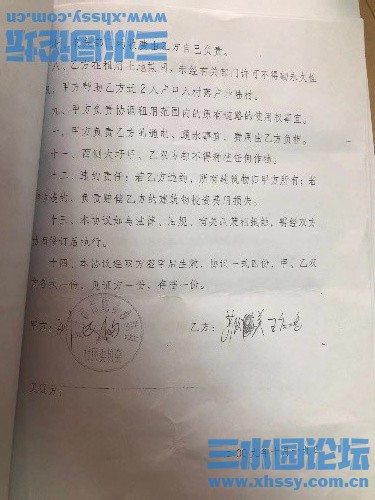 三水图论坛
www.xhssy.com.cn
由乙方自己负责。
八、乙方在租用土地范围内,未经有关部门许可不得砌永久性
甲方帮助乙方迁2人户口
九、甲方负责协调租用范围内的原有道路的使用权事宜。
十、甲方负责乙方的通电、通水事宜,费用由乙方负担。
十一、西侧大圩甲、乙双方都不得种植任何作物。
十二、违约责任:若乙方违约,所有建筑物归甲方所有;若
甲方违约,负责赔偿乙方的建筑物投资费用损失。
十三、本协议如与法律、法规、有关政策相抵触,需经双方
协商修订后执行。
十四、本协议经双方签字后生效,协议一式四份,甲、乙双
方各执一份,见证方一份,存档一份。
甲方:
乙方:
村民委员会
见证方:
三水图论坛
www.xhssy.com.cn